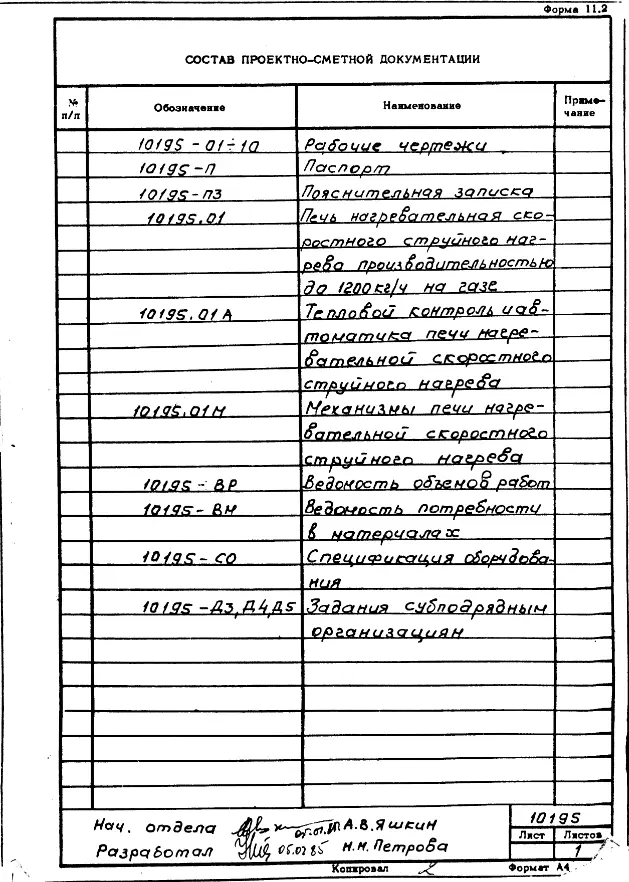 Форма 11.2
СОСТАВ ПРОЕКТНО-СМЕТНОЙ ДОКУМЕНТАЦИИ
№ п/п Обозначение Наименование Приме-
чание
10195-01÷10 Рабочие чертежи
10195-П Паспорт
10195-ПЗ Пояснительная записка
10195.01 Печь нагревательная ско-
ростного струйного наг-
рева производительностью
до 1200кг/ч на газе
10195.01А Тепловой контроль и ав-
томатика печи нагре-
вательной скоростного
струйного нагрева
10195.01М Механизмы печи нагре-
вательной скоростного
струйного нагрева
10195-ВР Ведомость объемов работ
10195-ВМ Ведомость потребности
в материалах
10195-СО Спецификация оборудова-
ния
10195-Д3,Д4,Д5 Задания субподрядным
организациям
Нач. отдела А.В.Яшкин 10195
Лист Листов
Разработал 05.02.85 Н.Н.Петрова 1
Копировал Формат А4